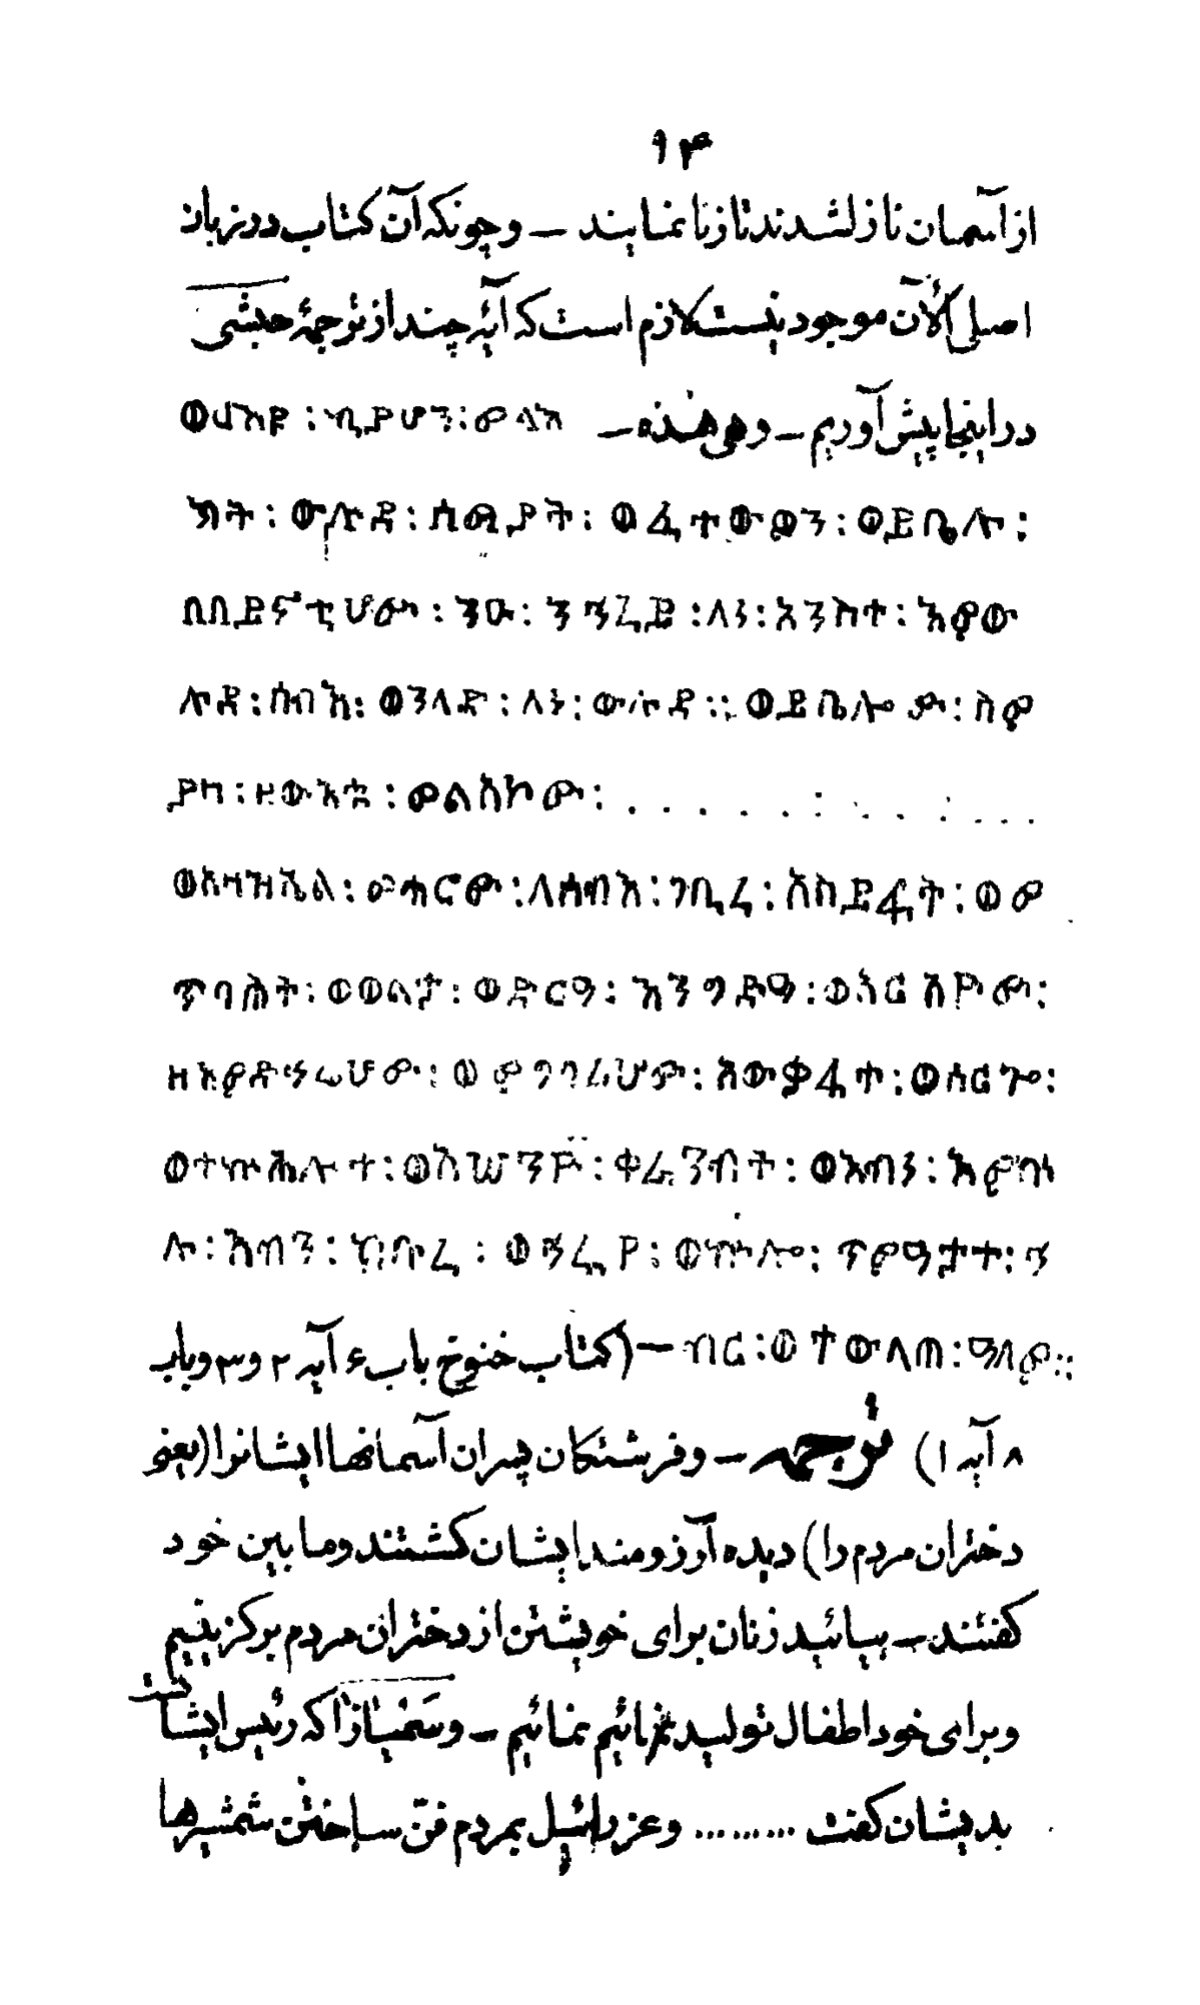 ۹۴
از آسمان نازل شدند تا زنا نمایند — و چونکه آن کتاب در زبان
اصلی الآن موجود نیست لازم است که آیهٔ چند از ترجمهٔ حبشی
در اینجا پیش آوریم — و هی هذه — ወርእዩ : ኪያሆን : መላእ
ክት : ውሉደ : ሰማያት : ወፈተውዎን : ወይቤሉ :
በበይናቲሆሙ : ንዑ : ንኅረይ : ለነ : አንስተ : እምው
ሉደ : ሰብእ : ወንለድ : ለነ : ውሉደ ። ወይቤሎሙ : ስም
ያዛ : ዘውእቱ : መልአኮሙ : . . . . . . . . . . . .
ወአዛዝኤል : መሐሮሙ : ለሰብእ : ገቢረ : አስይፍት : ወመ
ጥባሕት : ወወልታ : ወድርዓ : እንግድዓ : ወአርአዮሙ :
ዘእምድኅሬሆሙ : ወምግባሪሆሙ : አውቃፋተ : ወሰርጐ :
ወተኵሕሎተ : ወአሠንዮ : ቀራንብት : ወእብነ : እምኵ
ሉ : እብን : ክቡረ : ወኅሩየ : ወኵሎ : ጥምዓታተ : ኅ
ብር : ወተውላጠ : ዓለም ። — (کتاب خنوخ باب ۶ آیه ۲ و ۳ و باب
۸ آیه ۱) ترجمه — و فرشتگان پسران آسمانها ایشانرا (یعنی
دختران مردم را) دیده آرزومند ایشان گشتند و ما بین خود
گفتند — بیائید زنان برای خویشتن از دختران مردم برگزینیم
و برای خود اطفال تولید نمائیم — و سَمْیازا که رئیس ایشان است
بدیشان گفت ........ و عزرائیل بمردم فنّ ساختن شمشیرها